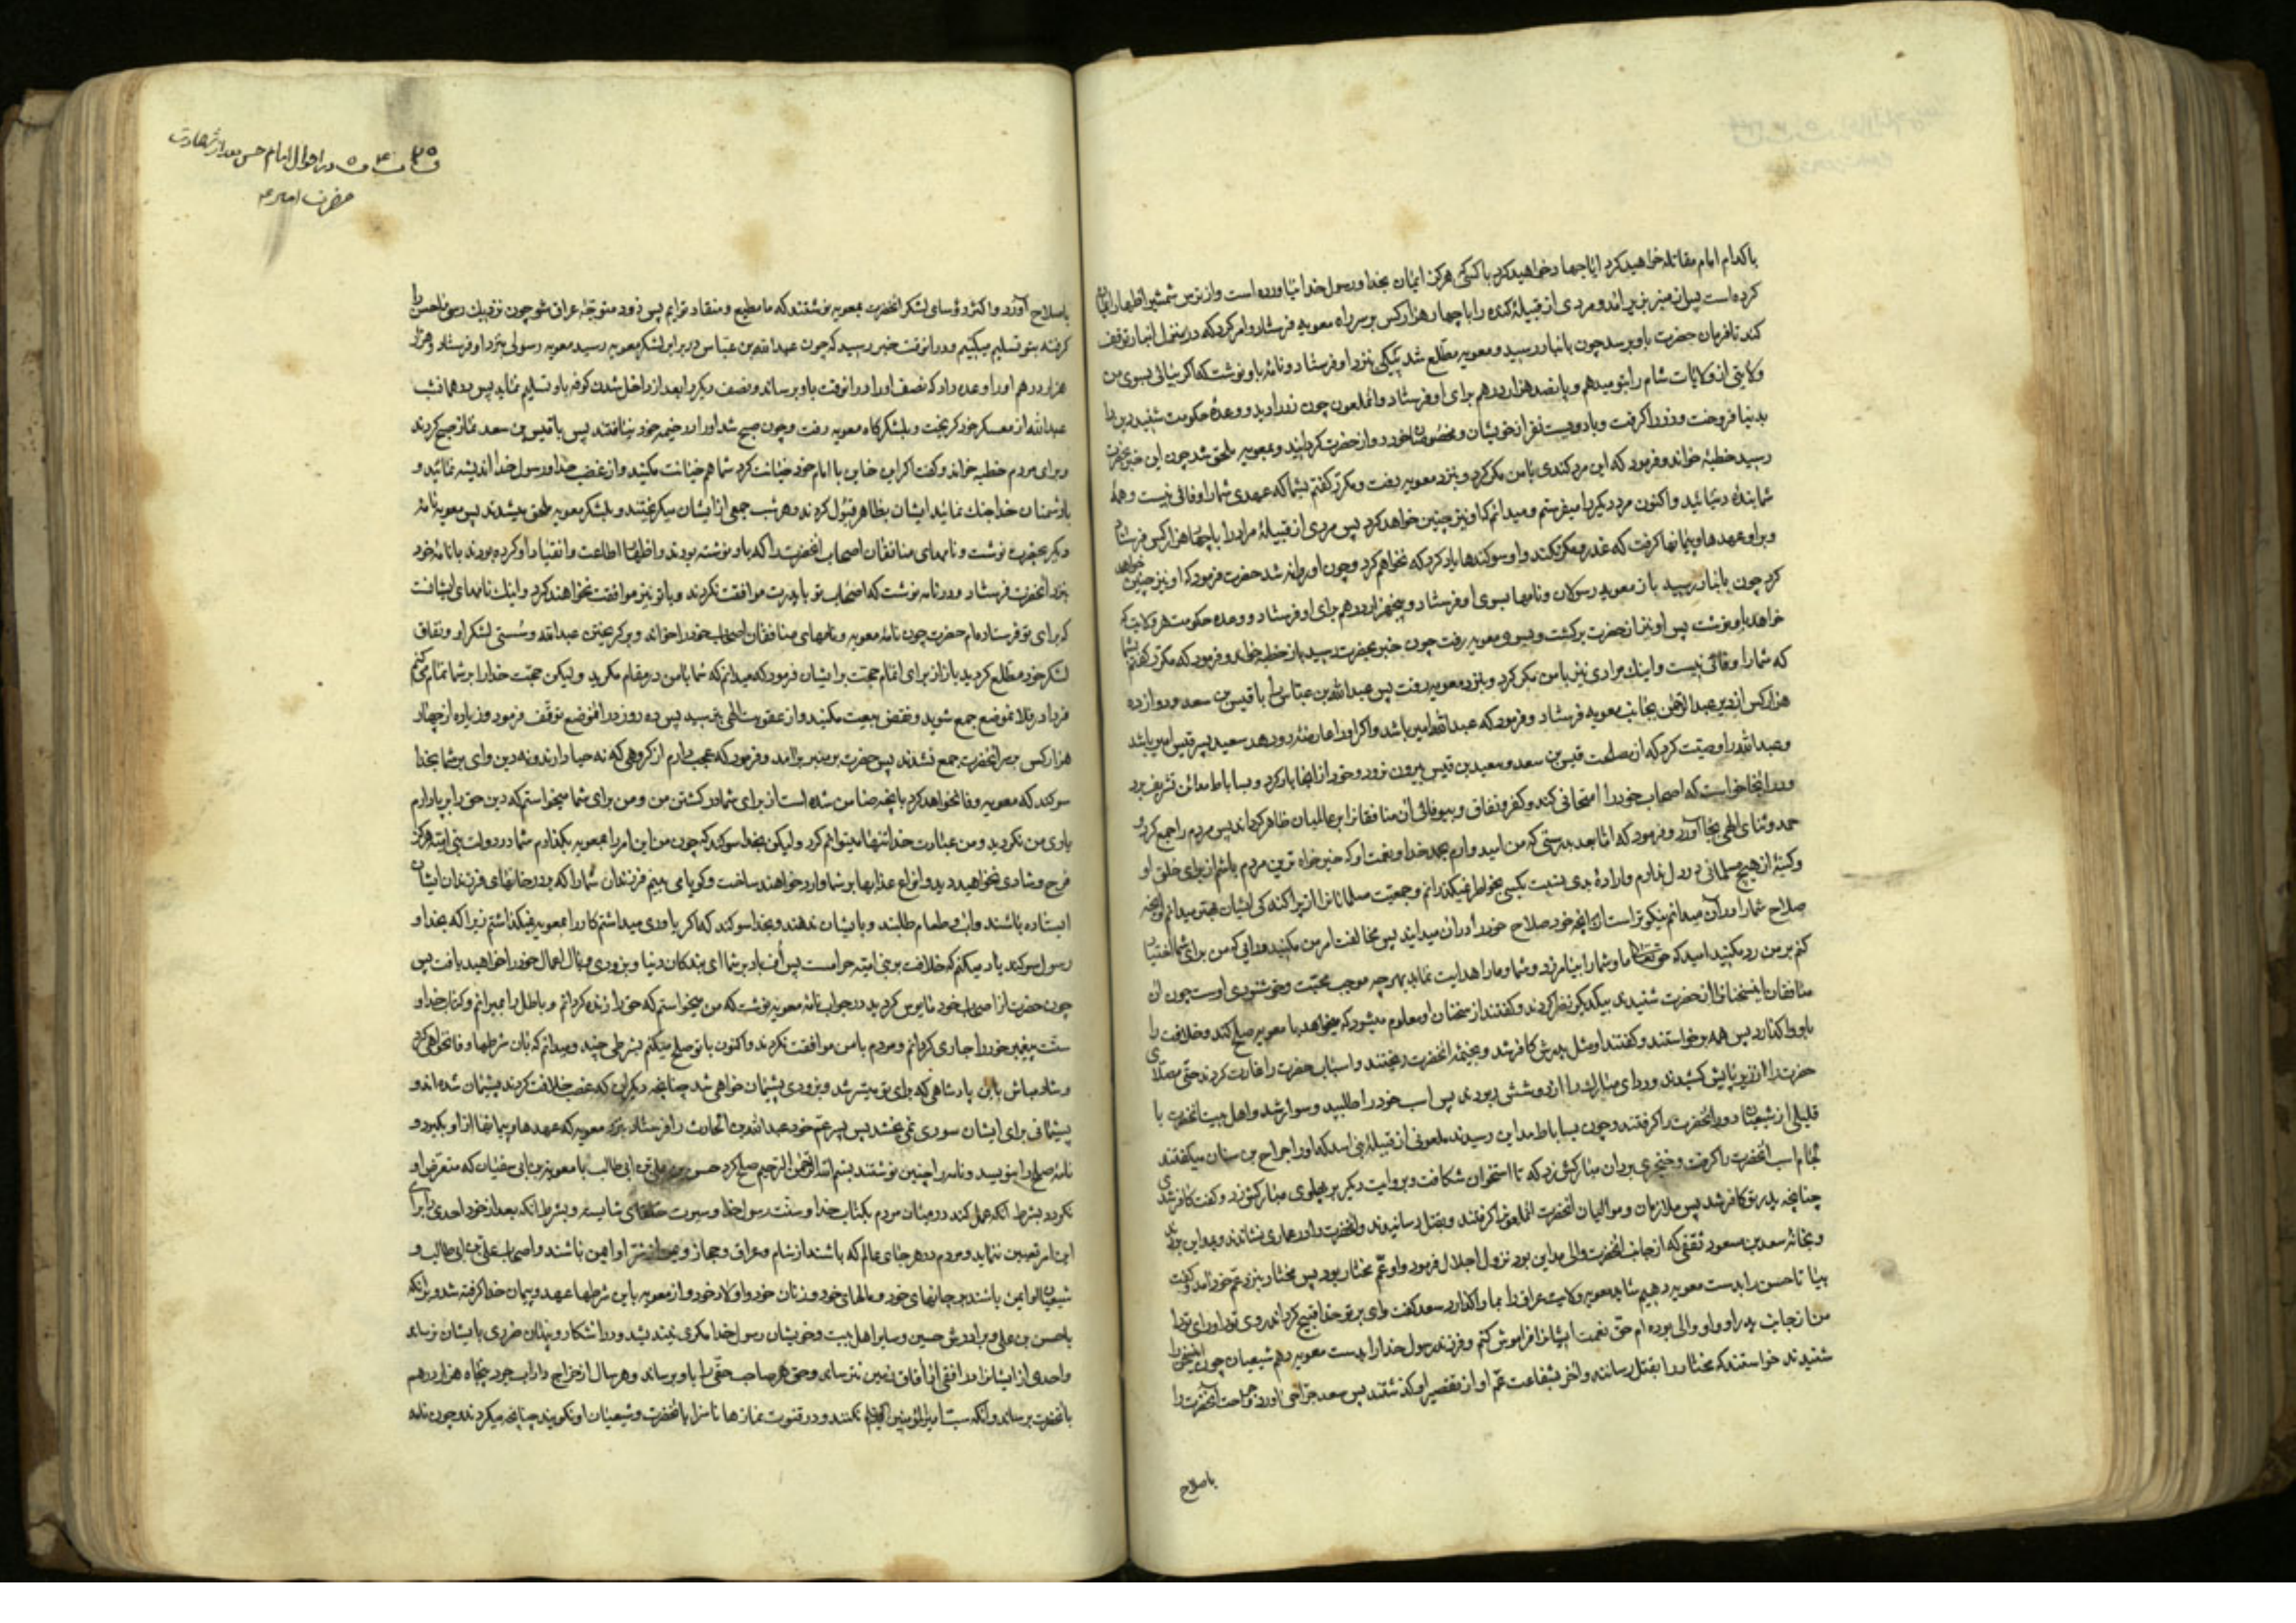 با کدام امام مقاتله خواهید کرد ایا جهاد خواهید کرد با کسی که هرگز ایمان بخدا و رسول خدا نیاورده است و از ترس شمشیر اظهار ایمان
کرده است پس از منبر بزیر آمد و مردی از قبیلهٔ کنده را با چهار هزار کس بر سر راه معویه فرستاد و امر کرد که در منزل انبار توقف
کند تا فرمان حضرت باو برسد چون بانبار رسید و معویه مطلع شد پیکی بنزد او فرستاد و نامهٔ باو نوشت که اگر بیائی بسوی من
ولایتی از ولایات شام را بتو میدهم و پانصد هزار درهم برای او فرستاد و انملعون چون زر را دید و وعدهٔ حکومت شنید دین را
بدنیا فروخت و زر را گرفت و با دویست نفر از خویشان و مخصوصان خود رو از حضرت گردانید و بمعویه ملحق شد چون این خبر بحضرت
رسید خطبه خواند و فرمود که این مرد کندی با من مکر کرد و بنزد معویه رفت و مکرر گفتم بشما که عهدی شما را وفائی نیست و همهٔ
شما بندهٔ دنیائید و اکنون مرد دیگر را میفرستم و میدانم که او نیز چنین خواهد کرد پس مردی از قبیلهٔ مراد را با چهار هزار کس فرستاد
و بر او عهدها و پیمانها گرفت که غدر و مکر نکند و او سوگندها یاد کرد که نخواهم کرد و چون او روانه شد حضرت فرمود که او نیز چنین خواهد
کرد چون بانبار رسید باز معویه رسولان و نامها بسوی او فرستاد و پنجهزار درهم برای او فرستاد و وعده حکومت هر ولایت که
خواهد باو نوشت پس او نیز از حضرت برگشت و بسوی معویه رفت چون خبر بحضرت رسید باز خطبه خواند و فرمود که مکرر گفتم بشما
که شما را وفائی نیست و اینک مرادی نیز با من مکر کرد و بنزد معویه رفت پس عبدالله بن عباس را با قیس بن سعد و دوازده
هزار کس از دیر عبدالرحمن بجانب معویه فرستاد و فرمود که عبدالله امیر باشد و اگر او را عارضهٔ رو دهد سعید پسر قیس امیر باشد
و عبدالله را وصیت کرد که از مصلحت قیس بن سعد و سعید بن قیس بیرون نرود و خود از انجا بار کرد و بساباط مدائن تشریف برد
و در انجا خواست که اصحاب خود را امتحانی کند و کفر و نفاق و بیوفائی ان منافقان را بر عالمیان ظاهر گرداند پس مردم را جمع کرد و
حمد و ثنای الهی بجا آورد و فرمود که اما بعد بدرستی که من امید وارم بحمد خدا و نعمت او که خیرخواه ترین مردم باشم از برای خلق او
و کینهٔ از هیچ مسلمانی در دل ندارم و ارادهٔ بدی بنسبت بکسی بخاطر نمیگذرانم و جمعیت مسلمانان را از پراکندگی ایشان بهتر میدانم و انچه
صلاح شما را در آن میدانم نیکوتر است از انچه خود صلاح خود را در ان میدانید پس مخالفت امر من مکنید و رایی که من برای شما اختیار
کنم بر من رد مکنید امید که حق تعالی ما و شما را بیامرزد و شما و ما را هدایت نماید بهرچه موجب محبت و خوشنودی اوست چون ان
منافقان این سخنان را از حضرت شنیدند بیکدیگر نظر کردند و گفتند از سخنان او معلوم میشود که میخواهد با معویه صلح کند و خلافت را
باو واگذارد پس همه برخواستند و گفتند او مثل پدرش کافر شد و بخیمهٔ انحضرت ریختند و اسباب حضرت را غارت کردند حتی مصلای
حضرت را از زیر پایش کشیدند و ردای مبارک را از دوشش ربودند پس اسب خود را طلبید و سوار شد و اهل بیت انحضرت با
قلیلی از شیعیان دور انحضرت را گرفتند و چون بساباط مداین رسیدند ملعونی از قبیلهٔ بنی اسد که او را جراح بن سنان میگفتند
لجام اسب انحضرت را گرفت و خنجری بر ران مبارکش زد که تا استخوان شکافت و بروایت دیگر بر پهلوی مبارکش زد و گفت کافر شدی
چنانچه پدر تو کافر شد پس ملازمان و موالیان انحضرت انملعون را گرفتند و بقتل رسانیدند و انحضرت را در عماری نشاندند و بمداین بردند
و بخانهٔ سعد بن مسعود ثقفی که از جانب انحضرت والی مداین بود نزول اجلال فرمود و او عم مختار بود پس مختار بنزد عم خود امد و گفت
بیا تا حسن را بدست معویه دهیم شاید معویه ولایت عراق را بما واگذارد سعد گفت وای بر تو خدا قبیح گرداند روی تو را و رای تو را
من از جانب پدر او و او والی بوده ام حق نعمت ایشان را فراموش کنم و فرزند رسول خدا را بدست معویه دهم شیعیان چون این سخن را
شنیدند خواستند که مختار را بقتل رسانند و اخر بشفاعت عم او از تقصیر او گذشتند پس سعد جراحی اورد و جراحت انحضرت را
باصلاح
در احوال امام حسن بعد از شهادت
حضرت امیر ع
باصلاح آورد و اکثر رؤسای لشکر انحضرت بمعویه نوشتند که ما مطیع و منقاد توایم پس زود متوجه عراق شو چون نزدیک رسی ما حسن را
گرفته بتو تسلیم میکنیم و در انوقت خبر رسید که چون عبدالله بن عباس در برابر لشکر معویه رسید معویه رسولی بنزد او فرستاد و هزار
هزار درهم او را وعده داد که نصف او را در انوقت باو برساند و نصف دیگر را بعد از داخل شدن کوفه باو تسلیم نماید پس در همانشب
عبدالله از معسکر خود گریخت و بلشکرگاه معویه رفت و چون صبح شد او را در خیمهٔ خود نیافتند پس با قیس بن سعد نماز صبح کردند
و برای مردم خطبه خواند و گفت اگر این خاین با امام خود خیانت کرد شما هم خیانت مکنید و از غضب خدا و رسول خدا اندیشه نمائید و
با دشمنان خدا جنک نمائید ایشان بظاهر قبول کردند و هر شب جمعی از ایشان میگریختند و بلشکر معویه ملحق میشدند پس معویه نامهٔ
دیگر بحضرت نوشت و نامهای منافقان اصحاب انحضرت را که باو نوشته بودند و اظهار اطاعت و انقیاد او کرده بودند با نامهٔ خود
بنزد انحضرت فرستاد و در نامه نوشت که اصحاب تو با پدرت موافقت نکردند و با تو نیز موافقت نخواهند کرد و اینک نامهای ایشانست
که برای تو فرستاده ام حضرت چون نامهٔ معویه و نامهای منافقان اصحاب خود را خواند و بر گریختن عبدالله و سستی لشکر او و نفاق
لشکر خود مطلع گردید باز از برای اتمام حجت بر ایشان فرمود که میدانم که شما با من در مقام مکرید و لیکن حجت خدا را بر شما تمام میکنم
فردا در فلان موضع جمع شوید و نقض بیعت مکنید و از عقوبت الهی بترسید پس ده روز در انموضع توقف فرمود و زیاده از چهار
هزار کس بر سر انحضرت جمع نشدند پس حضرت بر منبر برآمد و فرمود که عجب دارم از گروهی که نه حیا دارند و نه دین وای بر شما بخدا
سوگند که معویه وفا نخواهد کرد بانچه ضامن شده است از برای شما در کشتن من و من برای شما میخواستم که دین حق را بر پا دارم
یاری من نکردید و من عبادت خدا را تنها میتوانم کرد و لیکن بخدا سوگند که چون من این امر را بمعویه بگذارم شما در دولت بنی امیه هرگز
فرح و شادی نخواهید دید و انواع عذابها بر شما وارد خواهند ساخت و گویا می بینم فرزندان شما را که بر در خانهای فرزندان ایشان
ایستاده باشند و آب و طعام طلبند و بایشان ندهند و بخدا سوگند که اگر یاوری میداشتم کار را بمعویه نمیگذاشتم زیرا که بخدا و
رسول سوگند یاد میکنم که خلافت بر بنی امیه حرامست پس اف باد بر شما ای بندگان دنیا و بزودی وبال اعمال خود را خواهید یافت پس
چون حضرت از اصحاب خود مایوس گردید در جواب نامهٔ معویه نوشت که من میخواستم که حق را زنده گردانم و باطل را بمیرانم و کتاب خدا و
سنت پیغمبر خود را جاری گردانم و مردم با من موافقت نکردند و اکنون با تو صلح میکنم بشرطی چند و میدانم که بان شرطها وفا نخواهی کرد
و شاد مباش باین پادشاهی که برای تو میسر شد و بزودی پشیمان خواهی شد چنانچه دیگران که غصب خلافت کردند پشیمان شده اند و
پشیمانی برای ایشان سودی نمی بخشد پس پسر عم خود عبدالله بن الحارث را فرستاد بنزد معویه که عهدها و پیمانها از او بگیرد و
نامهٔ صلح را بنویسد و نامه را چنین نوشتند بسم الله الرحمن الرحیم صلح کرد حسن بن علی بن ابی طالب با معویه بن ابی سفیان که متعرض او
نگردد بشرط آنکه عمل کند در میان مردم بکتاب خدا و سنت رسول خدا و سیرت خلفای شایسته و بشرط آنکه بعد از خود احدی را برای
این امر تعیین ننماید و مردم در هر جای عالم که باشند از شام و عراق و حجاز و یمن از شر او ایمن باشند و اصحاب علی بن ابی طالب و
شیعیان او ایمن باشند بر جانهای خود و مالهای خود و زنان خود و اولاد خود و از معویه باین شرطها عهد و پیمان خدا گرفته شد و بر آنکه
با حسن بن علی و برادرش حسین و سایر اهل بیت و خویشان رسول خدا مکری نیندیشد و در آشکار و پنهان ضرری بایشان نرساند
و احدی از ایشان را در افقی از آفاق زمین نترساند و حق هر صاحب حقی را باو برساند و هر سال از خراج داراب جرد پنجاه هزار درهم
بانحضرت برساند و آنکه سب امیرالمؤمنین نکنند و در قنوت نمازها ناسزا بانحضرت و شیعیان او نگویند چنانچه میکردند چون نامه